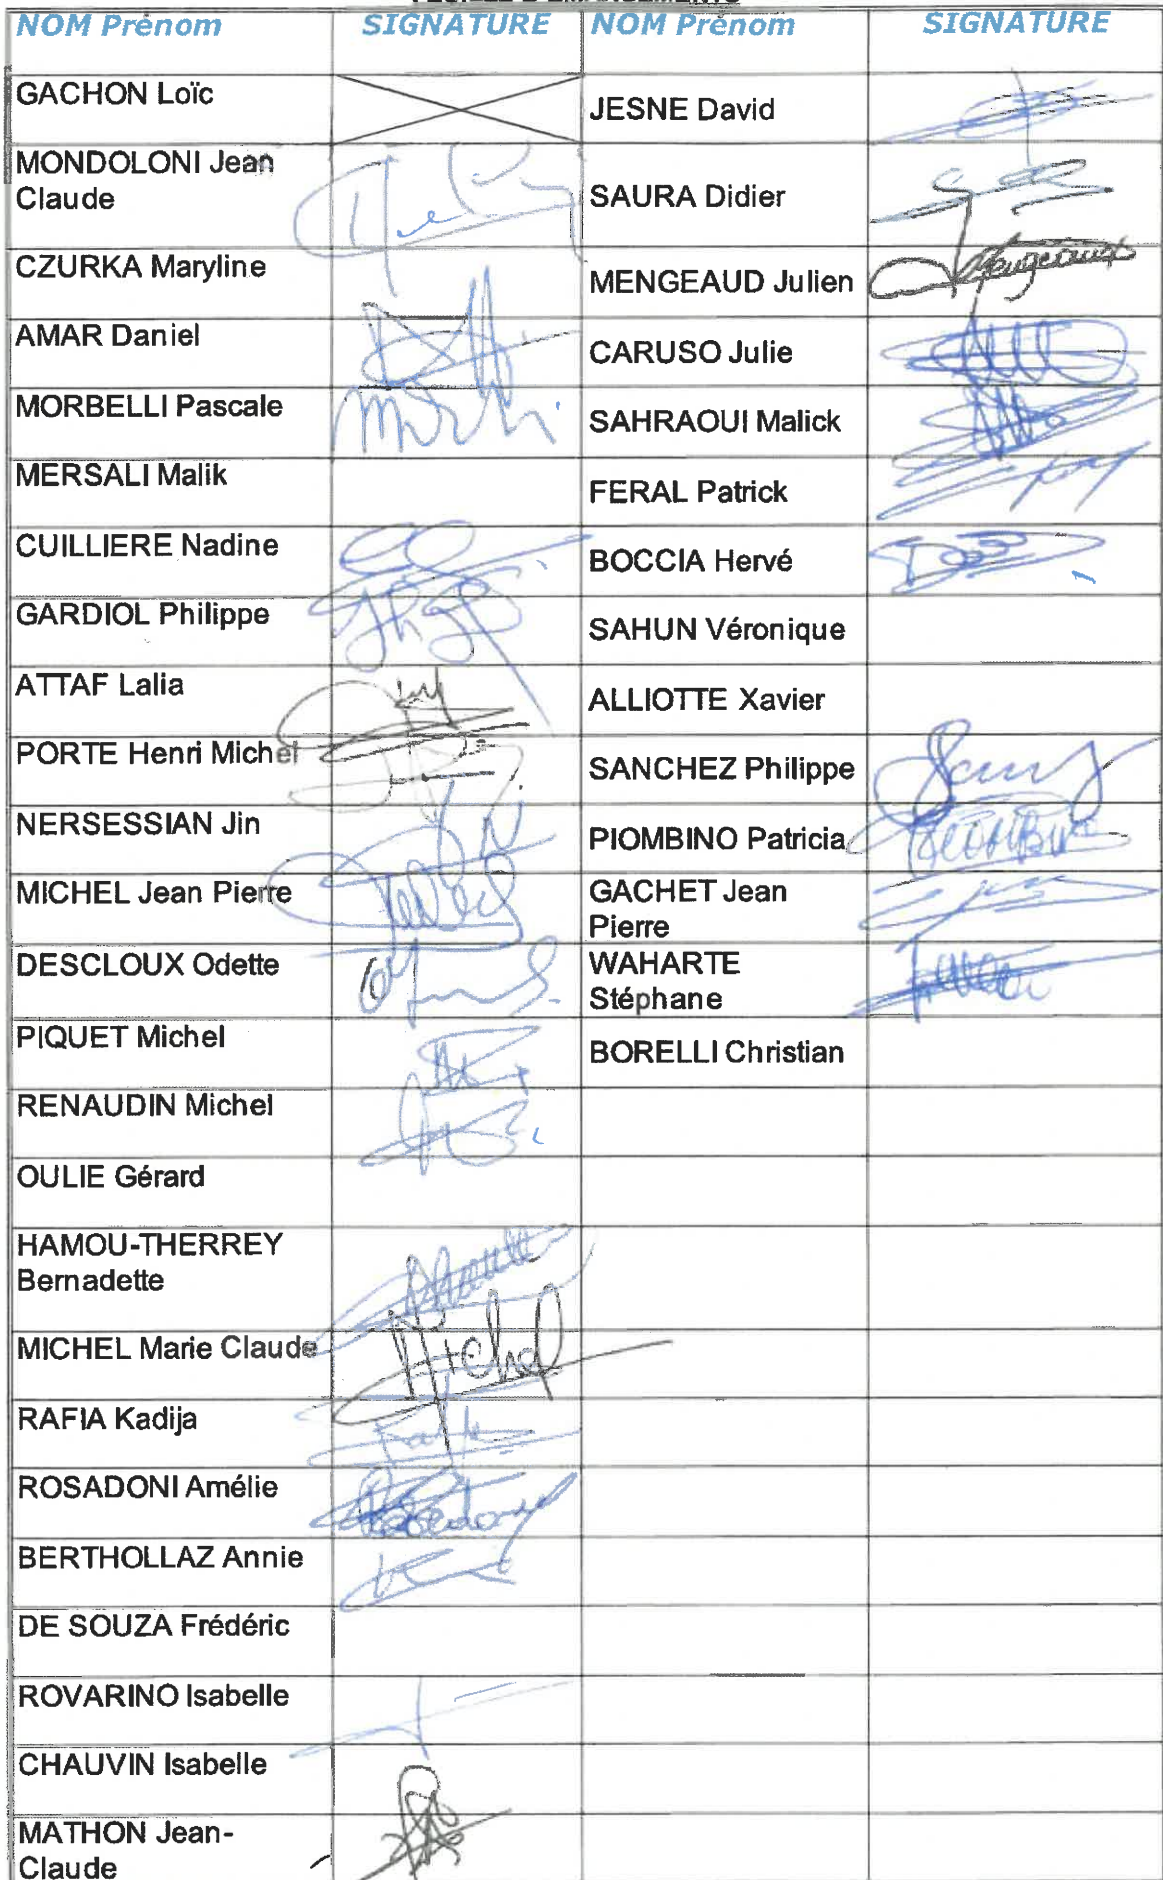 NOM Prénom SIGNATURE NOM Prénom SIGNATURE
GACHON Loïc JESNE David
MONDOLONI Jean
Claude SAURA Didier
CZURKA Maryline MENGEAUD Julien
AMAR Daniel CARUSO Julie
MORBELLI Pascale SAHRAOUI Malick
MERSALI Malik FERAL Patrick
CUILLIERE Nadine BOCCIA Hervé
GARDIOL Philippe SAHUN Véronique
ATTAF Lalia ALLIOTTE Xavier
PORTE Henri Michel SANCHEZ Philippe
NERSESSIAN Jin PIOMBINO Patricia
MICHEL Jean Pierre GACHET Jean
Pierre
DESCLOUX Odette WAHARTE
Stéphane
PIQUET Michel BORELLI Christian
RENAUDIN Michel
OULIE Gérard
HAMOU-THERREY
Bernadette
MICHEL Marie Claude Michel
RAFIA Kadija
ROSADONI Amélie
BERTHOLLAZ Annie
DE SOUZA Frédéric
ROVARINO Isabelle
CHAUVIN Isabelle
MATHON Jean-
Claude